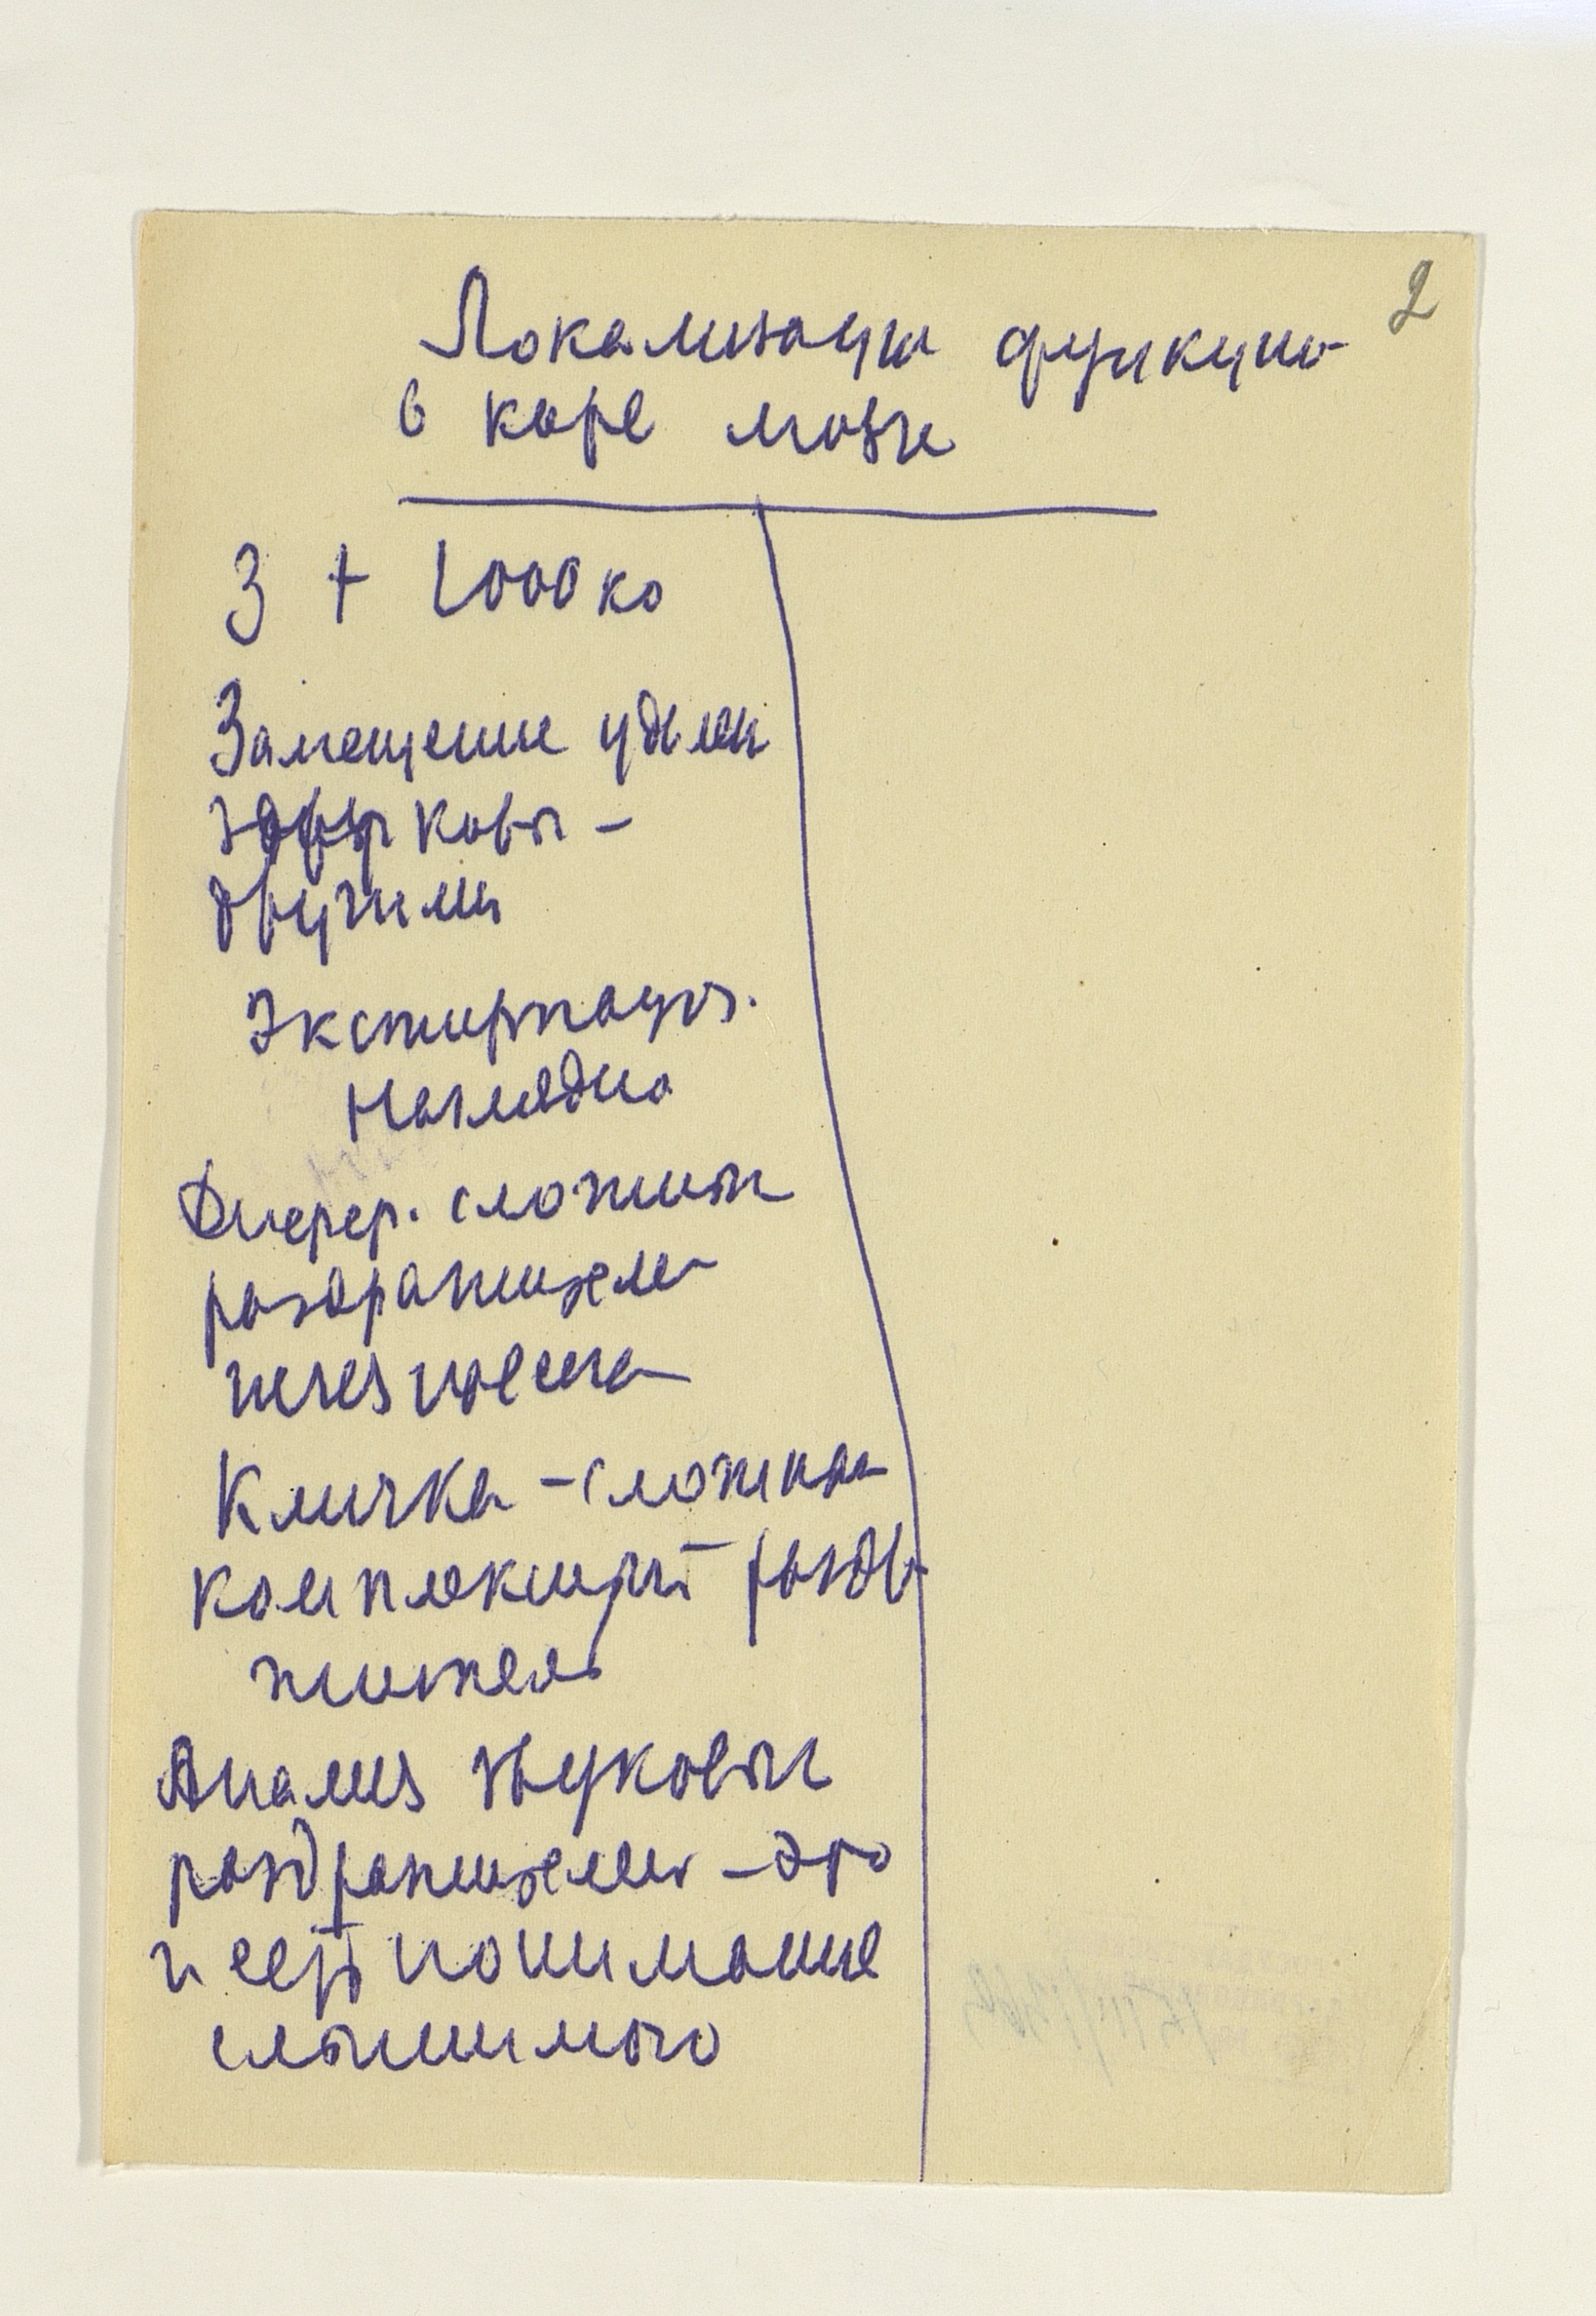 2
Локализация функций
в коре мозга
3 + 1000ко
Замещение удален
кобы -
другими
Экстирпация.
Наглядно
Дифер. сложных
раздражителей
исчезновение
Кличка - сложная
комплексный раздра
житель
Анализ звуковых
раздражителей - это
и есть понимание
слышимого